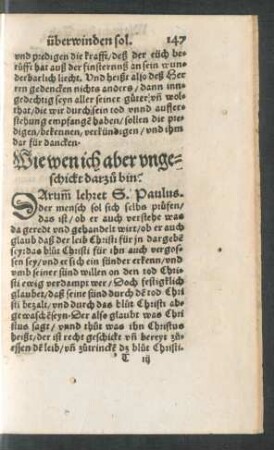 überwinden sol. 147
vnd predigen die krafft, deß der eüch be-
rüfft hat auß der finsternnß an sein wun-
derbarlich liecht. Vnd heißt also deß Her-
ren gedencken nichts anders, dann inn-
gedechtig seyn aller seiner güter, vñ wol-
that, die wir durch sein tod vnnd auffer-
stehung empfangẽ haben, sollen die pre-
digen, bekennen, verkündigen, vnd ihm
dar für dancken.
Wie wen ich aber vnge-
schickt darzů bin?
DArum̃ lehret S. Paulus.
der mensch sol sich selbs prüfen,
das ist, ob er auch verstehe was
da geredt vnd gehandelt wirt, ob er auch
glaub daß der leib Christi für jn dargebẽ
sey: das blůt Christi für ihn auch vergos-
sen sey, vnd er sich ein sünder erkenn, vnd
vmb seiner sünd willen on den tod Chri-
sti ewig verdampt wer, Doch festigklich
glaubet, daß seine sünd durch dẽ tod Chri
sti bezalt, vnd durch das blůt Christi ab-
gewaschẽ seyn. Der also glaubt was Chri
stus sagt, vnnd thůt was ihn Christus
heißt, der ist recht geschickt vñ bereyt zů-
essen dẽ leib, vñ zůtrinckẽ dz blůt Christi.
T iij